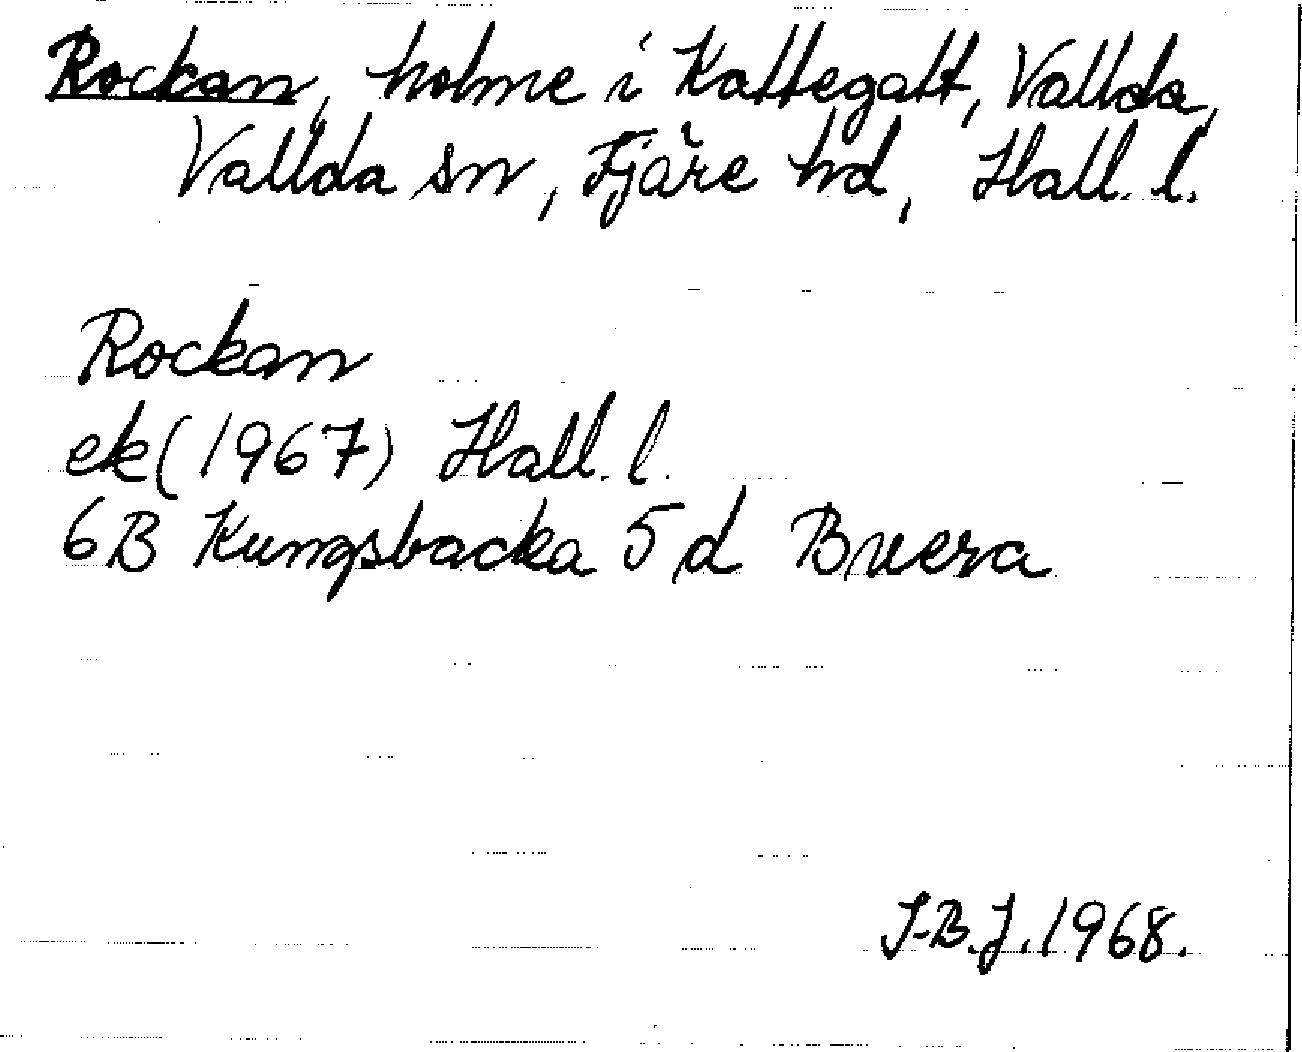 Rockan, holme i Kattegatt, Vallda,
Vallda sn, Fjäre hd, Hall. l.
Rockan
ek (1967) Hall. l.
6B Kungsbacka 5 d Buera
I-B.J. 1968.